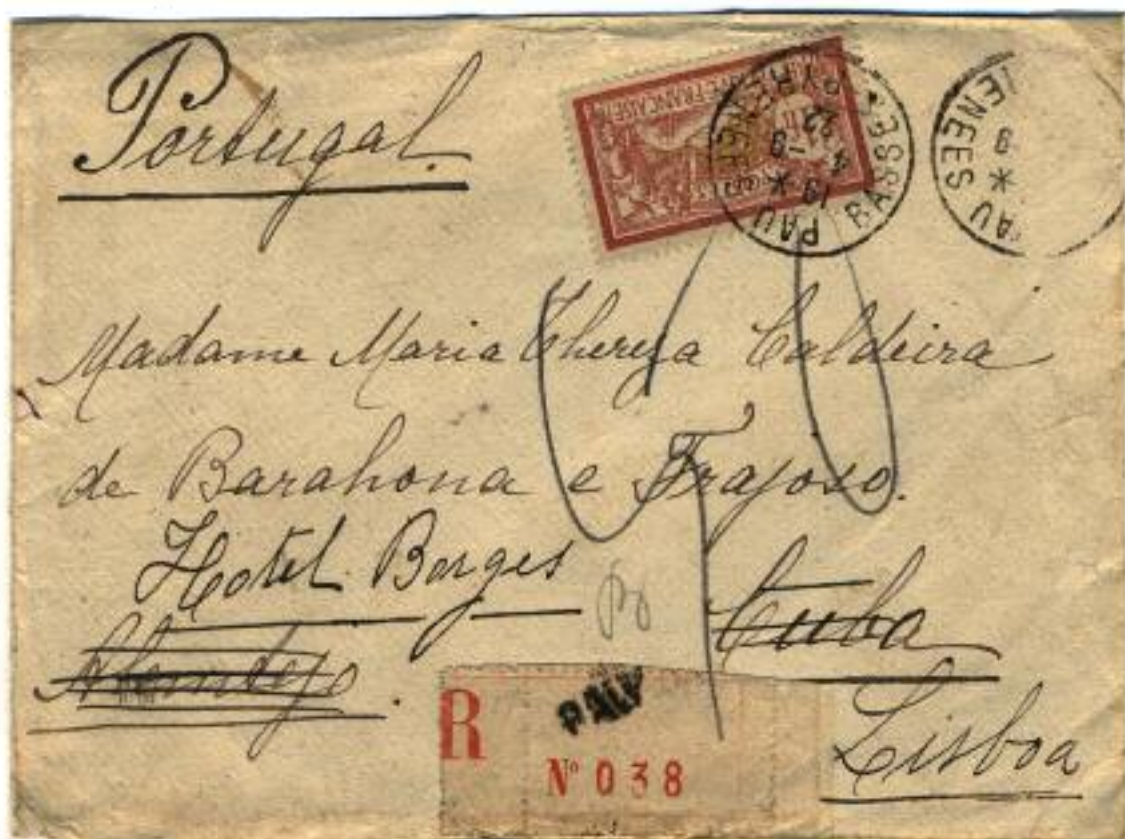 Portugal.
FRANÇAISE
PAU BASSES PYRENEES
19 *
4 - 9
23
PAU
ENEES
9
*
Madame Maria Thereza Caldeira
de Barahona e Frajoso.
Hotel Borges
Cuba
Alemtejo.
Lisboa
R
PAU
Nº 038